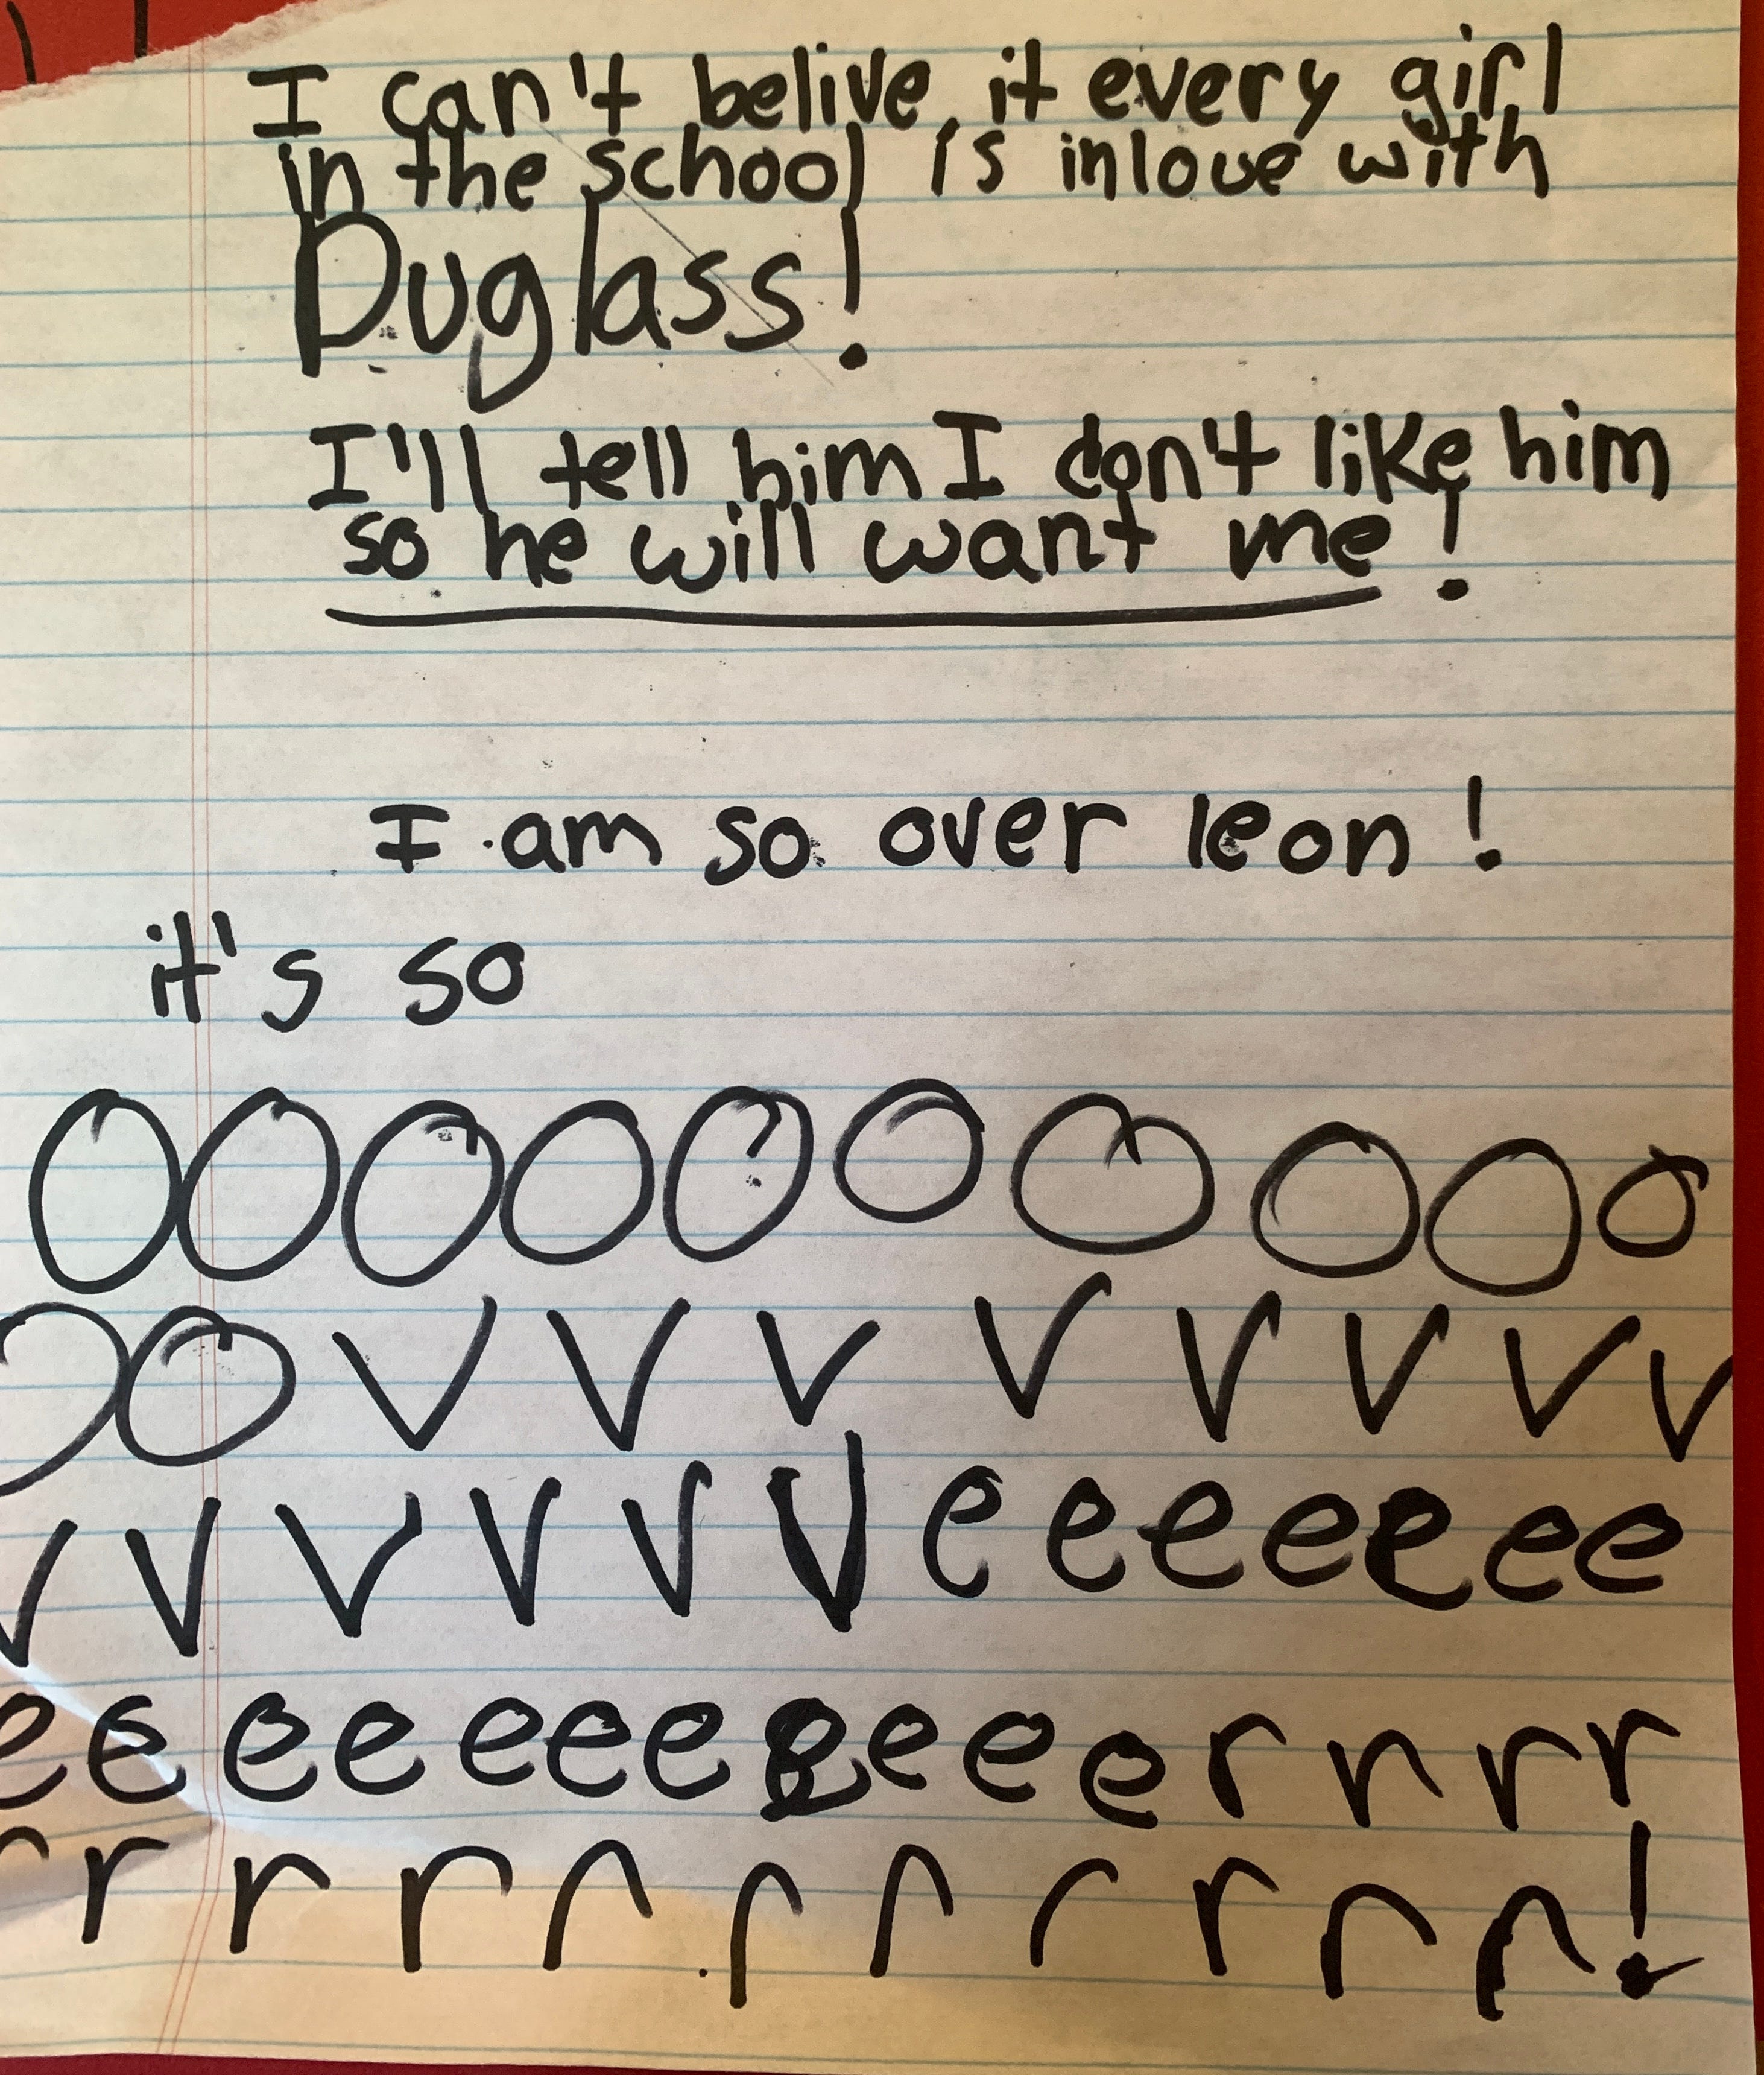 I can't belive it every girl
in the school is inlove with
Duglass!
I'll tell him I don't like him
so he will want me!
I am so over leon!
it's so
OOOOOOOOOO
OOVVVVVVVV
VVVVVVeeeeeee
eeeeeeeeeeerrrr
rrrrrrrrrrr!